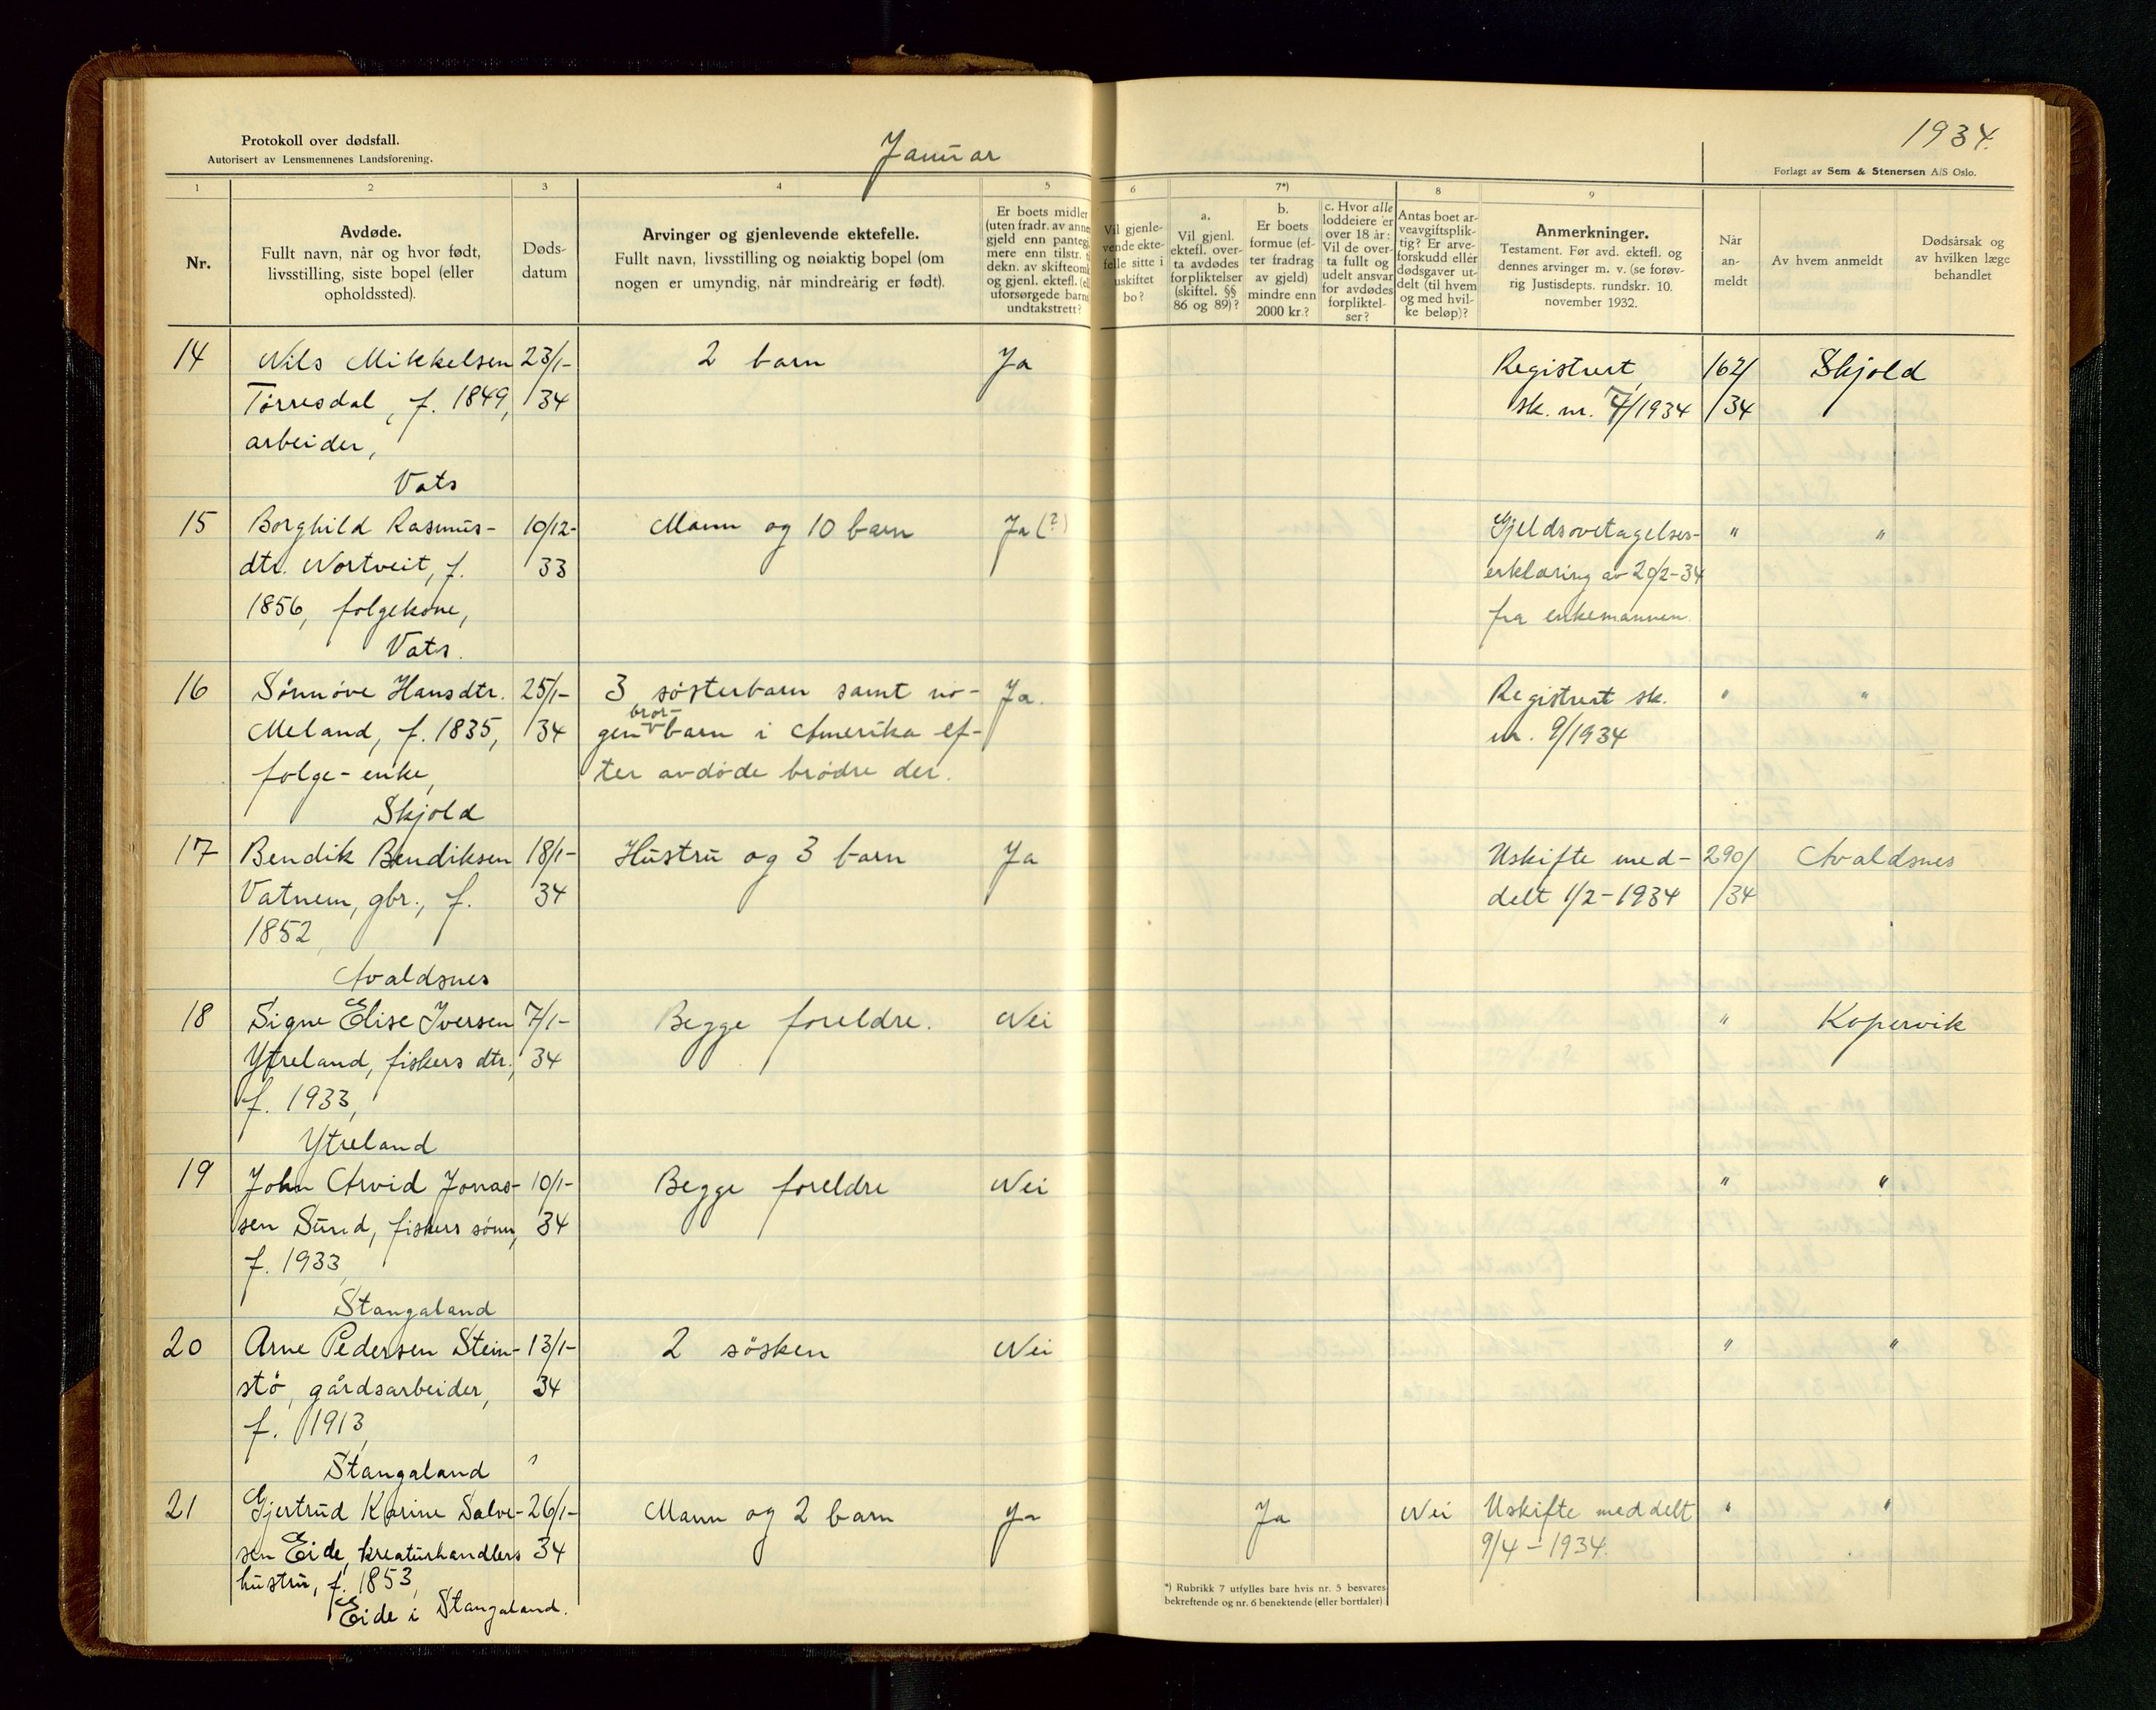 Protokoll over dødsfall.
Autorisert av Lensmennenes Landsforening.
Januar
1934.
Forlagt av Sem & Stenersen A/S Oslo.
1 2 3 4 5 6 7*) 8 9
Nr.
Avdøde.
Fullt navn, når og hvor født,
livsstilling, siste bopel (eller
opholdssted).
Døds-
datum
Arvinger og gjenlevende ektefelle.
Fullt navn, livsstilling og nøiaktig bopel (om
nogen er umyndig, når mindreårig er født).
Er boets midler
(uten fradr. av annen
gjeld enn pantegj.
mere enn tilstr. t
dekn. av skifteomk
og gjenl. ektefl. (el
uforsørgede barns
undtakstrett?
Vil gjenle-
vende ekte-
felle sitte i
uskiftet
bo?
a.
Vil gjenl.
ektefl. over-
ta avdødes
forpliktelser
(skiftel. §§
86 og 89)?
b.
Er boets
formue (ef-
ter fradrag
av gjeld)
mindre enn
2000 kr.?
c. Hvor alle
loddeiere er
over 18 år:
Vil de over-
ta fullt og
udelt ansvar
for avdødes
forpliktel-
ser?
Antas boet ar-
veavgiftsplik-
tig? Er arve-
forskudd eller
dødsgaver ut-
delt (til hvem
og med hvil-
ke beløp)?
Anmerkninger.
Testament. Før avd. ektefl. og
dennes arvinger m. v. (se forøv-
rig Justisdepts. rundskr. 10.
november 1932.
Når
an-
meldt
Av hvem anmeldt
Dødsårsak og
av hvilken læge
behandlet
14 Nils Mikkelsen 23/1- 2 barn Ja Registrert 162/ Skjold
Tørresdal, f. 1849, 34 sk. nr. 7/1934 /34
arbeider,
Vats
15 Borghild Rasmus- 10/12- Mann og 10 barn Ja (?) Gjeldsovetagelses- " "
dtr. Nortveit, f. 33 erklæring av 20/2-34
1856, folgekone, fra enkemannen.
Vats.
16 Sønnøve Hansdtr. 25/1- 3 søsterbarn samt no- Ja. Registrert sk. " "
Meland, f. 1835, 34 gen bror-barn i Amerika ef- nr. 9/1934
folge-enke, ter avdøde brødre der.
Skjold
17 Bendik Bendiksen 18/1- Hustru og 3 barn Ja Uskifte med- 290/ Avaldsnes
Vatnem, gbr., f. 34 delt 1/2-1934 /34
1852,
Avaldsnes
18 Signe Elise Iversen 7/1- Begge foreldre. Nei " Kopervik
Ytreland, fiskers dtr., 34
f. 1933,
Ytreland
19 John Arvid Jonas- 10/1- Begge foreldre Nei " "
sen Sund, fiskers sønn, 34
f. 1933,
Stangaland
20 Arne Pedersen Stein- 13/1- 2 søsken Nei " "
stø, gårdsarbeider, 34
f. 1913,
Stangaland
21 Gjertrud Karine Salve- 26/1- Mann og 2 barn Ja Ja Nei Uskifte meddelt " "
sen Eide, kreaturhandlers 34 9/4-1934.
hustru, f. 1853,
Eide i Stangaland.
*) Rubrikk 7 utfylles bare hvis nr. 5 besvares
bekreftende og nr. 6 benektende (eller bortfaler)